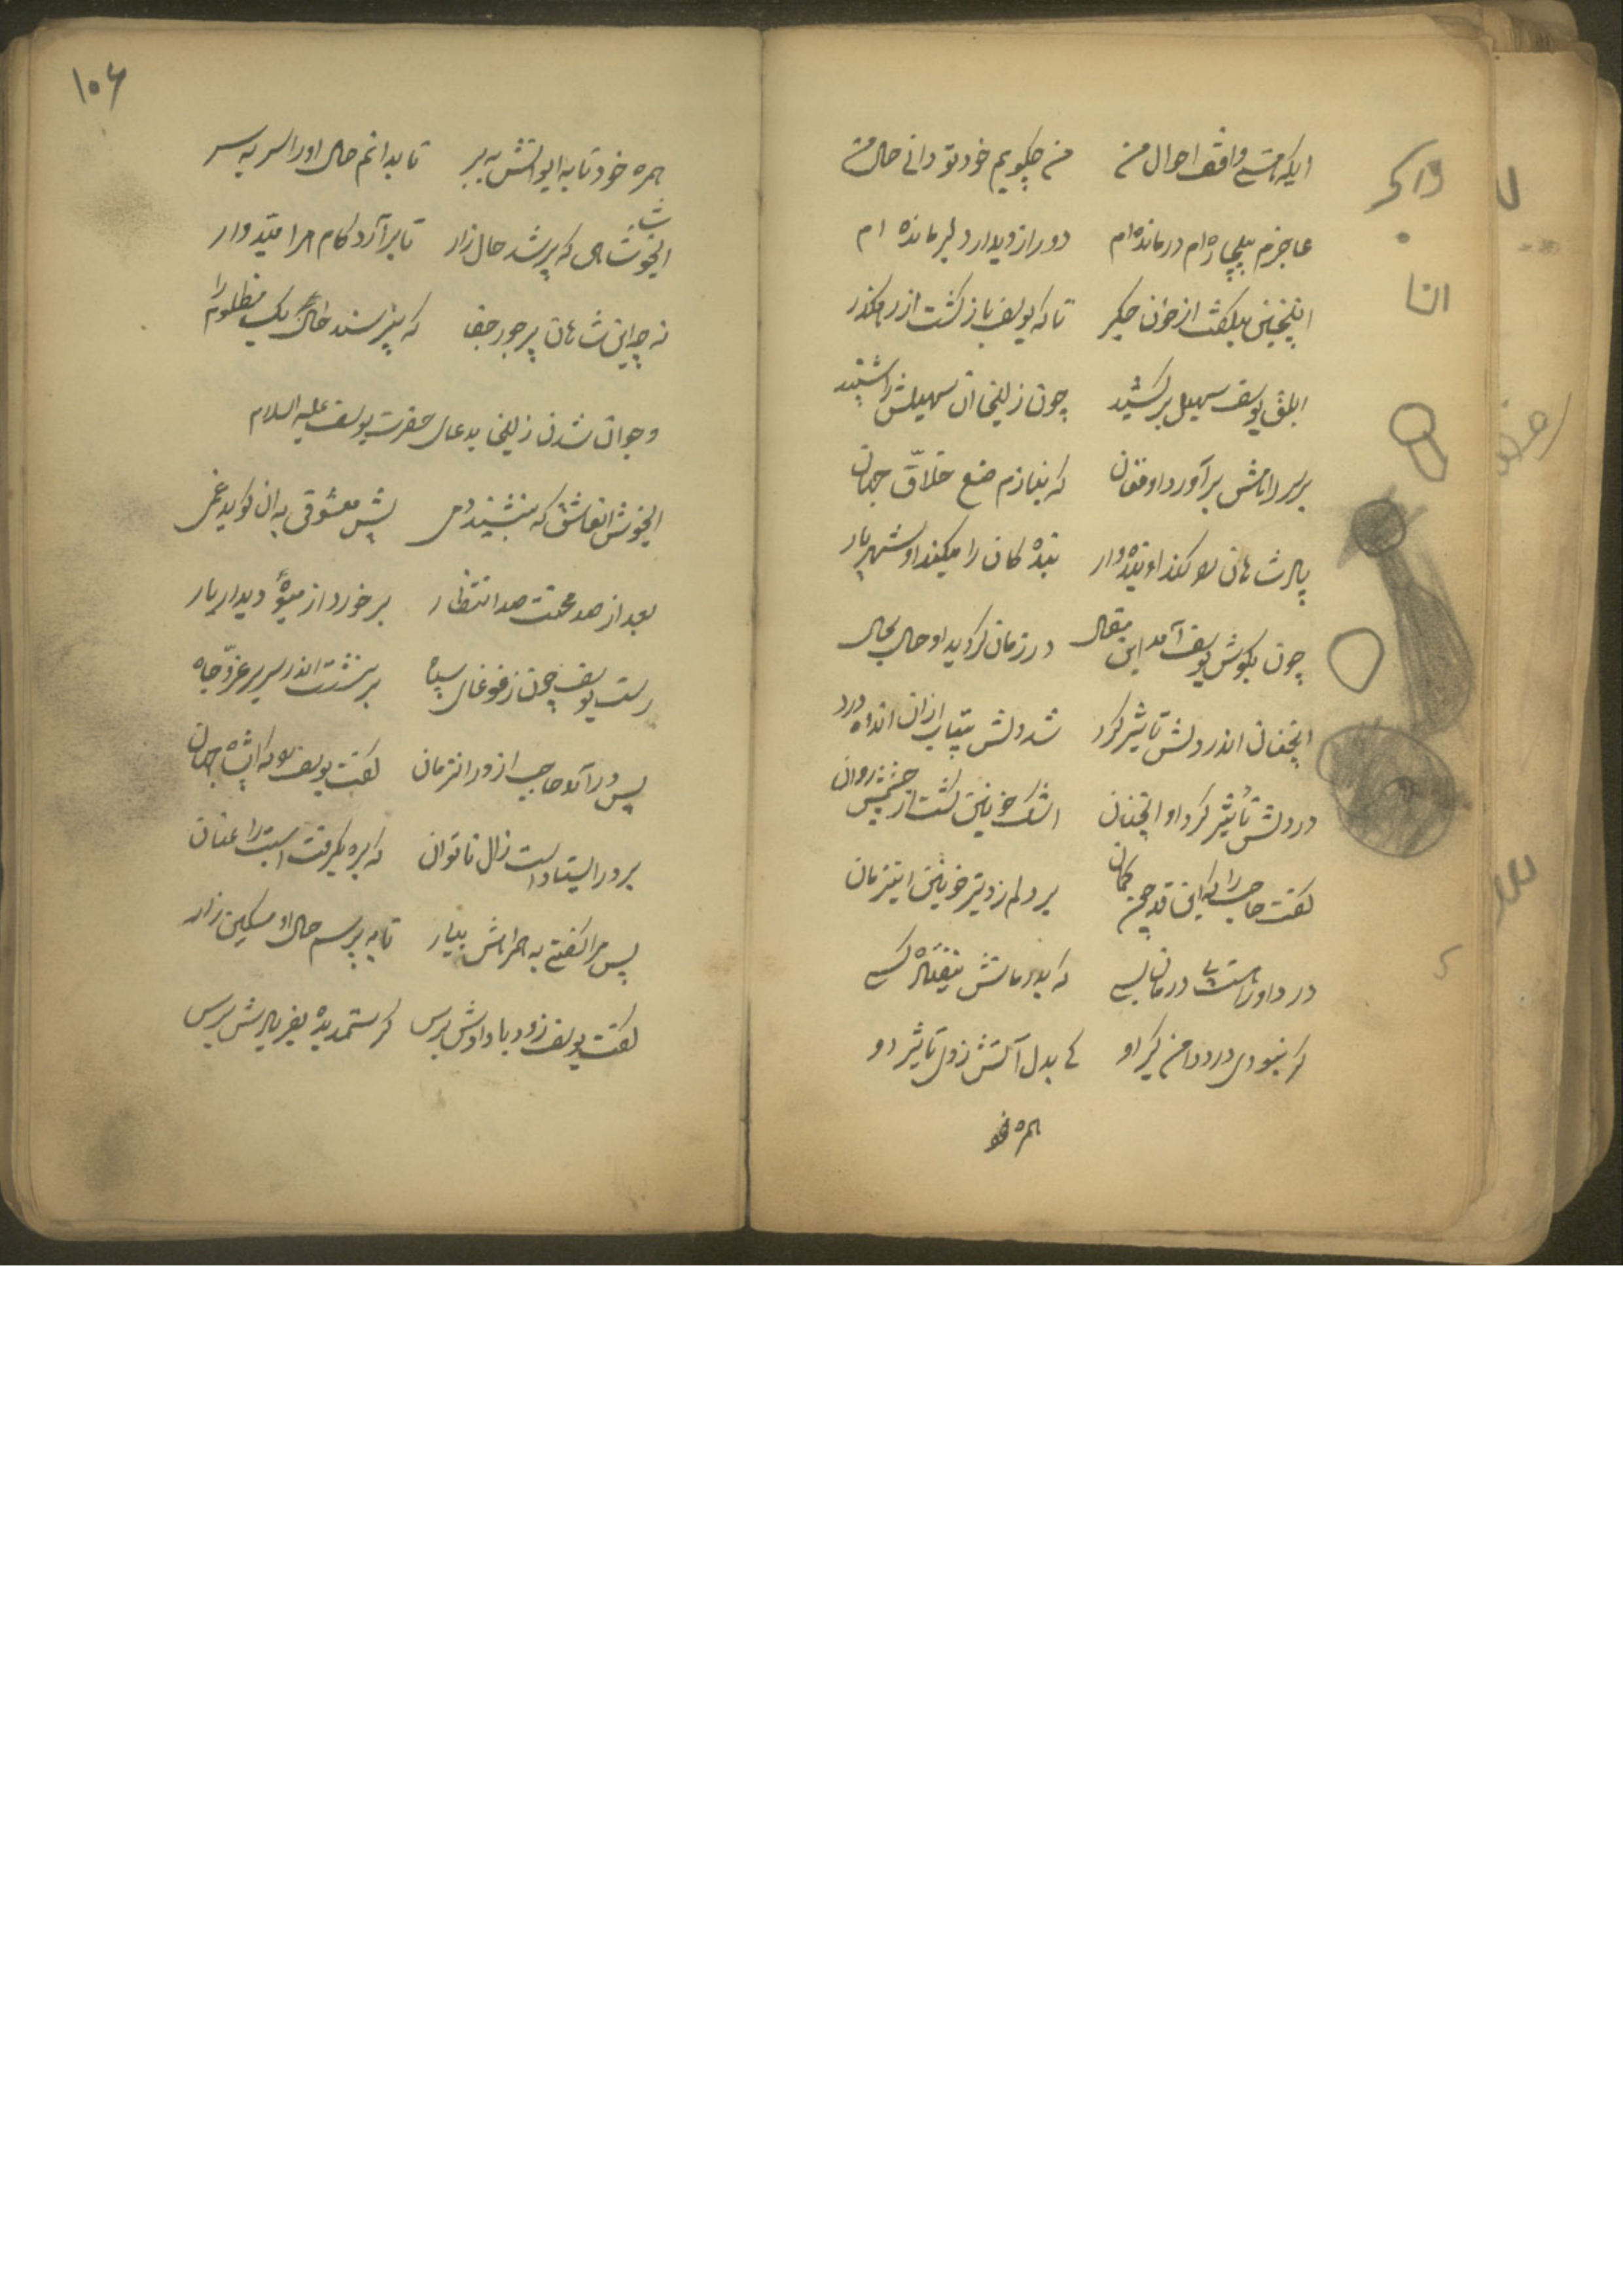 ایکه هستی واقف احوال من من چکویم خود تو دانی حال من
عاجزم بیچاره ام درمانده ام دور از دیدار دلبر مانده ام
اینچنین میکفت از خون جکر تا که یوسف باز کشت از رهکذر
ابلق یوسف سهیل برکشید چون زلیخا ان سهیلش را شنید
بر سر راهش برآورد او فغان که بنازم صنع خلاّق جهان
پادشاهان را کند او بنده وار بنده کان را میکند او شهریار
چون بکوش یوسف آمد این مقال در زمان کردید او حالی بحال
انچنان اندر دلش تاثیر کرد شد دلش بیتاب ازان اندوه درد
در دلش تأثیر کرد او انچنان اشک خونین کشت از چشمش روان
کفت حاجب را که این قد چون کمان بر دلم زد تیر خونین اینزمان
درد او را هست درمان بسی که بدرمانش نیفتاده کسی
کر نبودی درد دامن کیر او کی بدل آتش زدی تاثیر او
همره خو
۱۰۶
همره خود تا به ایوانش به بر تا بدانم حال او را سر به سر
ایخوش شاهی که پرسد حال زار تا برآرد کام هر امیدوار
نه چو این شاهان پر جور جفا که نپرسند حال یک مظلوم را
و جوان شدن زلیخا بدعای حضرت یوسف علیه السلام
ایخوش انعاشق که بنشیند دمی پیش معشوقی به ان کوید غمی
بعد از صد محنت صد انتظار بر خورد از میوهٔ دیدار یار
رست یوسف چون ز غوغای سپاه بر نشست اندر سریر عزّ و جاه
پس در آمد حاجب از در انزمان کفت یوسف را که ایشاه جهان
بر در ایستاد است زال ناتوان که بره بکرفت اسبت را عنان
پس مرا کفتی به همراهش بیار تا به پرسم حال او مسکین زار
کفت یوسف زود با دادش برس کر ستمدیده بفریادش برس